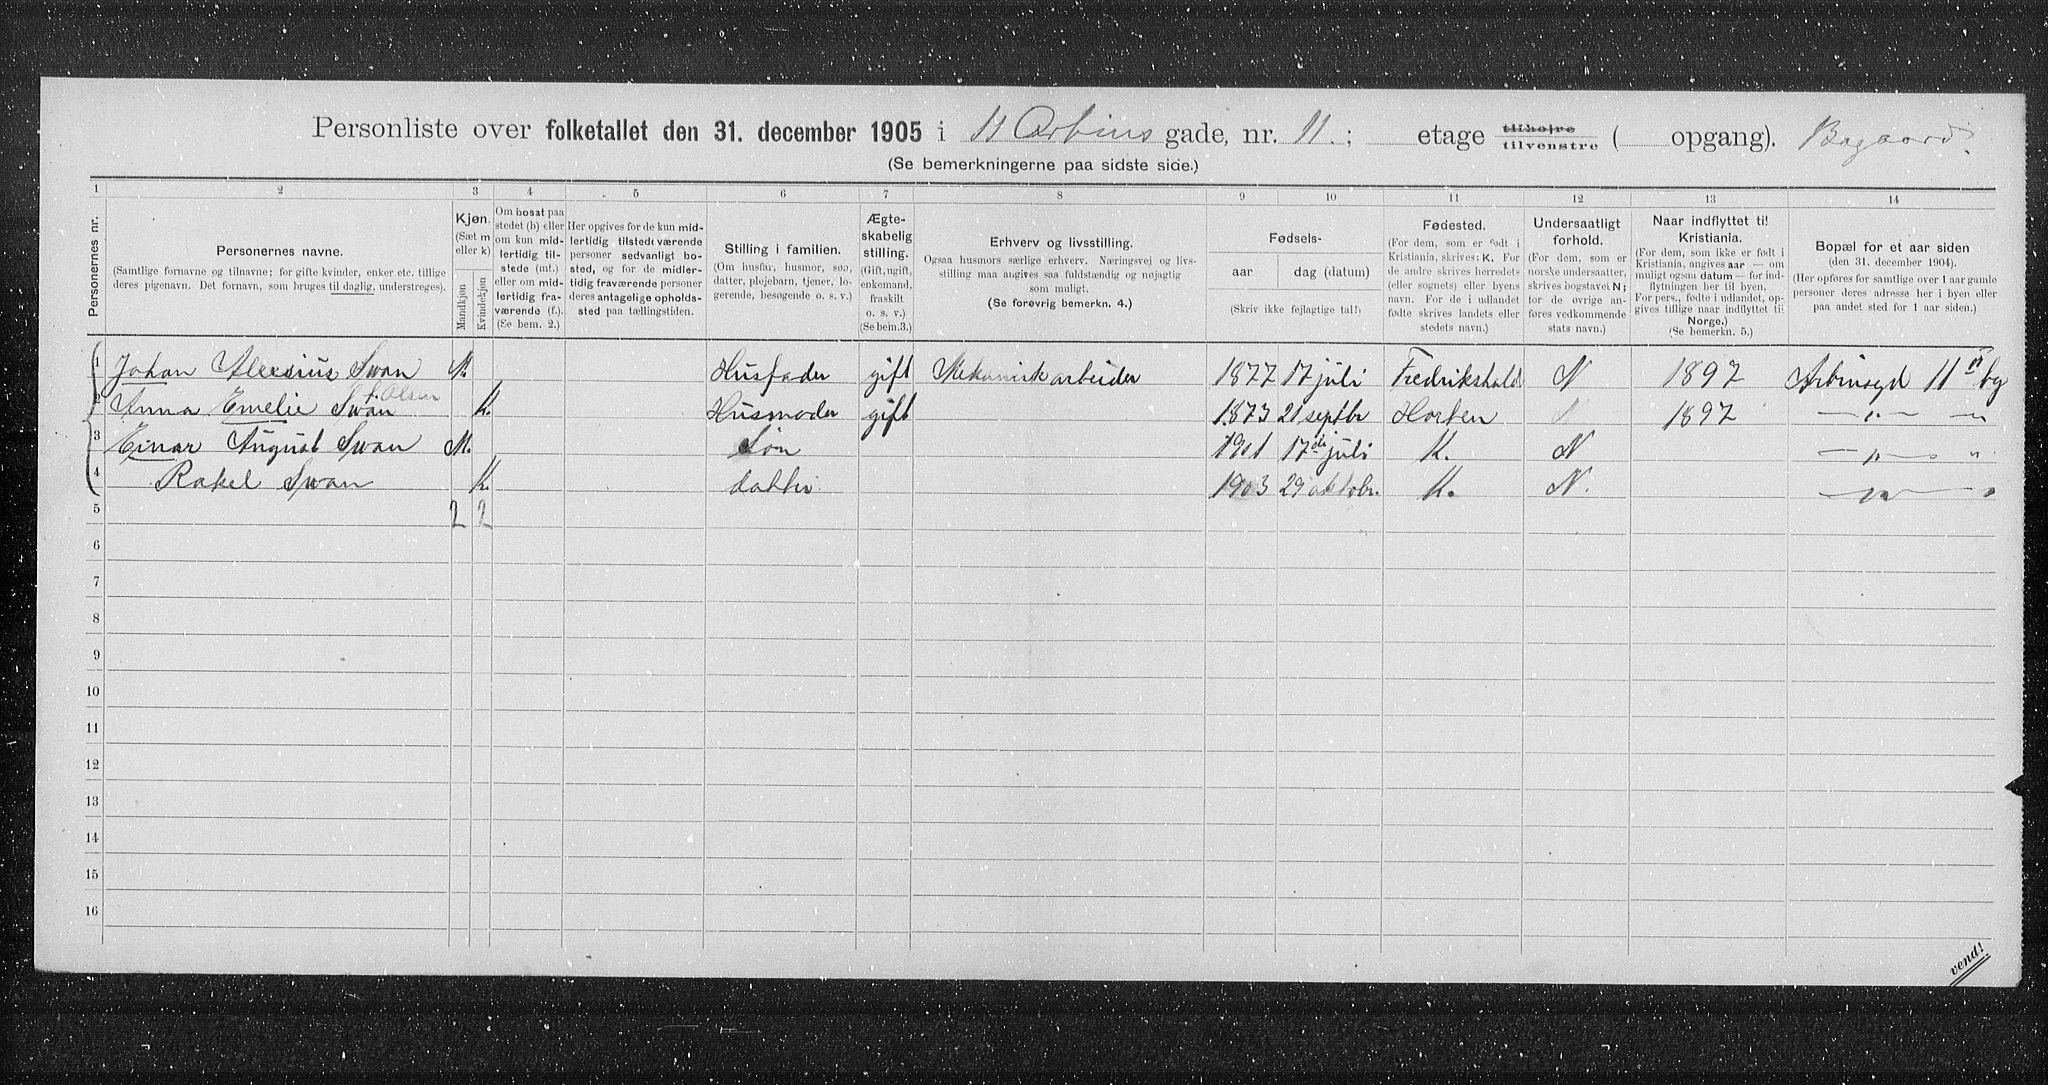 Personliste over folketallet den 31. december 1905 i 11 Arbins gade, nr. 11.; etage tilhøjre tilvenstre ( opgang). Bagaard.
(Se bemerkningerne paa sidste side.)
1 2 3 4 5 6 7 8 9 10 11 12 13 14
Personernes nr.
Personernes navne.
(Samtlige fornavne og tilnavne; for gifte kvinder, enker etc. tillige
deres pigenavn. Det fornavn, som bruges til daglig, understreges).
Kjøn.
(Sæt m
eller k)
Mandkjøn
Kvindekjøn
Om bosat paa
stedet (b) eller
om kun mid-
lertidig til-
stede (mt.)
eller om mid-
lertidig fra-
værende (f.).
(Se bem. 2.)
Her opgives for de kun mid-
lertidig tilstedeværende
personer sedvanlig bo-
sted, og for de midler-
tidig fraværende personer
deres antagelige opholds-
sted paa tællingstiden.
Stilling i familien.
(Om husfar, husmor, søn,
datter, plejebarn, tjener, lo-
gerende, besøgende o. s. v.)
Ægte-
skabelig
stilling.
(Gift, ugift,
enkemand,
fraskilt
o. s. v.)
(Se bem.3.)
Erhverv og livsstilling.
Ogsaa husmors særlige erhverv. Næringsvej og livs-
stilling maa angives saa fuldstændig og nøjagtig
som muligt.
(Se forøvrig bemerkn. 4.)
Fødsels-
aar dag (datum)
(Skriv ikke fejlagtige tal!)
Fødested.
(For dem, som er født i
Kristiania, skrives: K. For
de andre skrives herredets
(eller sognets) eller byens
navn. For de i udlandet
fødte skrives landets eller
stedets navn.)
Undersaatligt
forhold.
(For dem, som er
norske undersaatter,
skrives bogstavet N;
for de øvrige an-
føres vedkommende
stats navn.)
Naar indflyttet til
Kristiania.
(For dem, som ikke er født i
Kristiania, angives aar — om
muligt ogsaa datum — for ind-
flytningen her til byen.
For pers., fødte i udlandet, op-
gives tillige naar indflyttet til
Norge.)
(Se bemerkn. 5.)
Bopæl for et aar siden
(den 31. december 1904).
(Her opføres for samtlige over 1 aar gamle
personer deres adresse her i byen eller
paa andet sted for 1 aar siden.)
1 Johan Alexius Swan M. Husfader gift Mekanisk arbeider 1877 17 juli Fredrikshald N 1897 Arbinsgd 11 bg
f. Olsen
2 Anna Emelie Swan K. Husmoder gift 1873 21 septbr Horten 1897 — " — "
3 Einar August Swan M. Søn 1901 17de juli K. N — " — "
4 Rakel Swan K. datter 1903 29 oktobr. K. N. — " — "
5 2 2
6
7
8
9
10
11
12
13
14
15
16
vend!